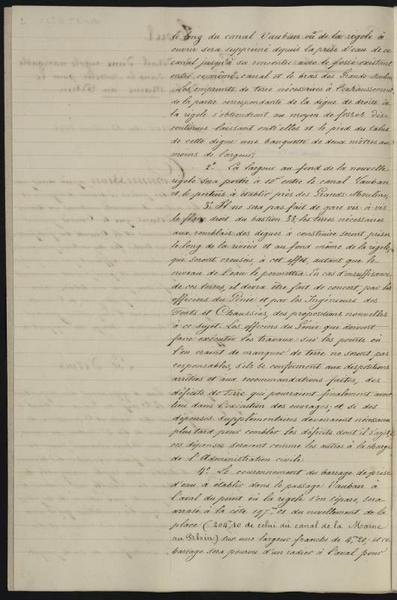 le long du canal Vauban où de la régole à
ouvrir sera supprimé depuis la prise d'eau de ce
canal jusqu'à sa rencontre avec le fossé existant
entre ce même canal et le bras des Grands Moulins.
Les emprunts de terre nécessaires à l'exhaussement
de la partie correspondante de la digue de droite de
la régole s'obtiendront au moyen de fosses dis-
continues laissant entr'elles et le pied du talus
de cette digue une banquette de deux mètres au
moins de largeur;
2° La largeur au fond de la nouvelle
régole sera portée à 10m entre le canal Vauban
et le pertuis à établir près des Grands Moulins;
3° Il ne sera pas fait de gare vis à vis
le flanc droit du bastion 38; les terres nécessaires
aux remblais des digues à construire seront prises
le long de la rivière et au fond même de la régole,
qui seront creusées à cet effet, autant que le
niveau de l'eau le permettra. En cas d'insuffisance
de ces terres, il devra être fait de concert, par les
officiers du Génie et par les Ingénieurs des
Ponts et Chaussées, des propositions nouvelles
à ce sujet. Les officiers du Génie qui doivent
faire exécuter les travaux sur les points où
l'on craint de manquer de terre ne seront pas
responsables, s'ils se conforment aux dispositions
arrêtées et aux recommandations faites, des
déficits de terre qui pourraient finalement avoir
lieu dans l'exécution des ouvrages; et si des
dépenses supplémentaires devenaient nécessaires
plus tard pour combler les déficits dont il s'agit,
ces dépenses seraient comme les autres à la charge
de l'Administration civile.
4° Le couronnement du barrage de prise
d'eau à établir dans le passage Vauban à
l'aval du point où la régole s'en sépare, sera
arasé à la côte 197 du nivellement de la
place (204,20 de celui du canal de la Marne
au Rhin) sur une largeur franche de 4m,20, et ce
barrage sera pourvu d'un radier à l'aval pour